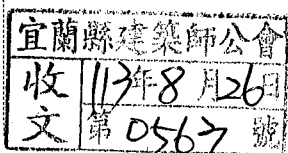 宜蘭縣建築師公會
收文
113年8月26日
第0567號